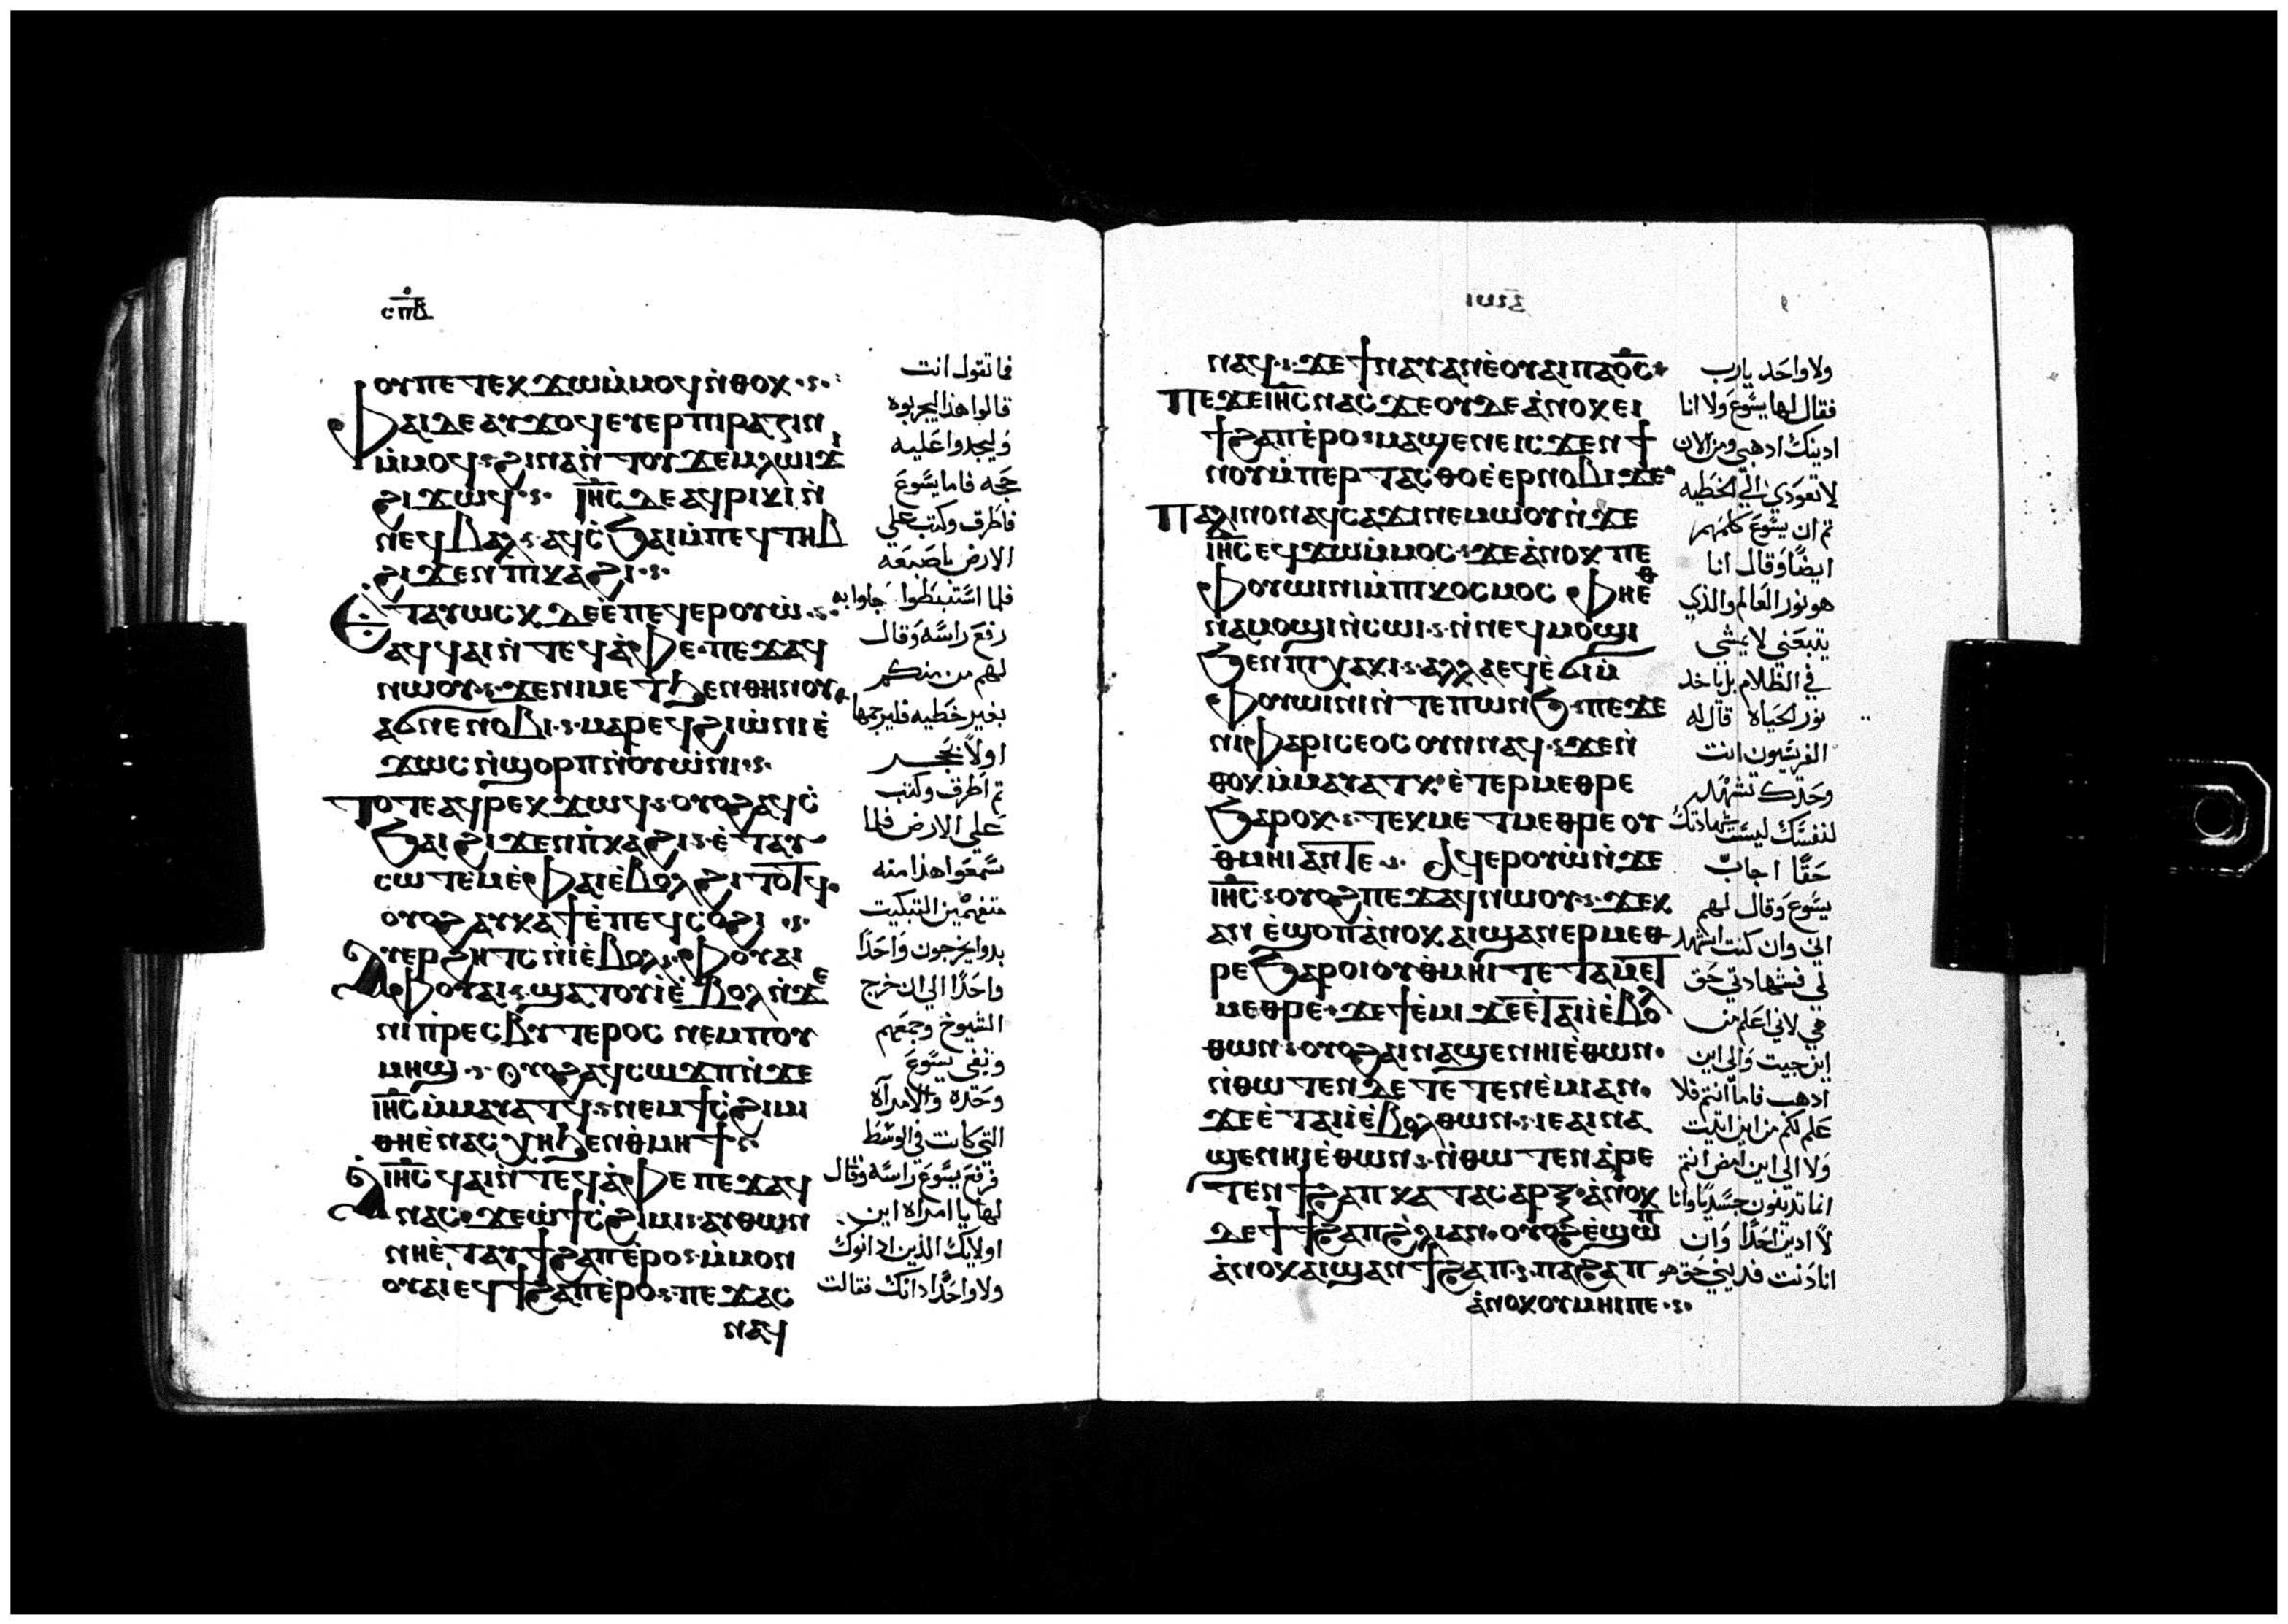 ⲥⲡⲃ
ⲟⲩⲡⲉⲧⲉⲕϫⲱⲙ̇ⲙⲟϥⲛ̇ⲑⲟⲕ
ⲫⲁⲓⲇⲉⲁⲩϫⲟϥⲉⲩⲉⲣⲡⲓⲣⲁⲍⲓⲛ
ⲙ̇ⲙⲟϥϩⲓⲛⲁⲛ̇ⲧⲟⲩϫⲉⲙⲗⲱⲓϫⲓ
ϩⲓϫⲱϥ ⲓⲏⲥⲇⲉⲁϥⲣⲓⲕⲓⲛ̇
ⲛⲉϥⲃⲁⲗⲁϥⲥ̇ϧⲁⲓⲙ̇ⲡⲉϥⲧⲏⲃ
ϩⲓϫⲉⲛⲡⲓⲕⲁϩⲓ
ⲉⲧⲁⲩⲱⲥⲕⲇⲉⲉ̇ⲡⲉϥⲉⲣⲟⲩⲱ̇
ⲁϥϥⲁⲓⲛ̇ⲧⲉϥⲁ̇ⲫⲉⲡⲉϫⲁϥ
ⲛⲱⲟⲩϫⲉⲛⲓⲙⲉⲧϧⲉⲛⲑⲏⲛⲟⲩ
ⲁϭⲛⲉⲛⲟⲃⲓⲙⲁⲣⲉϥϩⲓⲱ̇ⲛⲓⲉ̇
ϫⲱⲥⲛ̇ϣⲟⲣⲡⲛ̇ⲟⲩⲱ̇ⲛⲓ
ⲧⲟⲧⲉⲁϥⲣⲉⲕϫⲱϥⲟⲩⲟϩⲁϥⲥ̇
ϧⲁⲓϩⲓϫⲉⲛⲡ̇ⲕⲁϩⲓⲉ̇ⲧⲁⲩ
ⲥⲱⲧⲉⲙⲉ̇ⲫⲁⲓⲉ̇ⲃⲟⲗϩⲓⲧⲟⲧϥ
ⲟⲩⲟϩⲁⲩⲕⲁϯⲉ̇ⲡⲉϥⲥ̇ⲟϩⲓ
ⲁⲩⲉⲣϩⲏⲧⲥⲛ̇ⲓⲉ̇ⲃⲟⲗⲫⲟⲩⲁⲓ
ⲫⲟⲩⲁⲓϣⲁⲧⲟⲩⲓⲉ̇ⲃⲟⲗⲛ̇ϫⲉ
ⲛⲓⲡ̇ⲣⲉⲥⲃⲩⲧⲉⲣⲟⲥⲛⲉⲙⲡⲟⲩ
ⲙⲏϣⲟⲩⲟϩⲁϥⲥⲱϫⲡⲛ̇ϫⲉ
ⲓⲏⲥⲙ̇ⲙⲁⲩⲁⲧϥⲛⲉⲙϯⲥ̇ϩⲓⲙⲓ
ⲑⲏⲉ̇ⲛⲁⲥⲭⲏϧⲉⲛⲑ̇ⲙⲏϯ
ⲁⲓⲏⲥϥⲁⲓⲛ̇ⲧⲉϥⲁ̇ⲫⲉⲡⲉϫⲁϥ
ⲛⲁⲥϫⲉⲱ̇ϯⲥ̇ϩⲓⲙⲓⲁⲩⲑⲱⲛ
ⲛⲏⲉ̇ⲧⲁⲩϯϩⲁⲡⲉ̇ⲣⲟⲙ̇ⲙⲟⲛ
ⲟⲩⲁⲓⲉϥϯϩⲁⲡⲉ̇ⲣⲟⲡⲉϫⲁⲥ
ⲛⲁϥ
فما تقول انت
قالوا هذا ليجربوه
وليجدوا عليه
حجه فاما يسوع
فاطرف وكتب على
الارض باصبعه
فلما استبطوا جاوابه
رفع راسه وقال
لهم من منكم
بغير خطيه فليرجمها
اولاً بحجر
ثم اطرف وكتب
على الارض فلما
سمعوا هذا منه
متفهمين التبكيت
بدوا يخرجون واحدًا
واحدًا الي ان خرج
الشيوخ وجمعهم
وبقى يسوع
وحده والامراه
التي كانت في الوسط
فرفع يسوع راسه وقال
لها يا امراه اين
اولايك الذين ادانوك
ولا واحدًا دانك فقالت
ⲛⲁϥϫⲉϯⲛⲁⲩⲁⲛⲉ̇ⲟⲩⲁⲓⲡⲁⲟ̅ⲥ̅
ⲡⲉϫⲉⲓⲏⲥⲛⲁⲥϫⲉⲟⲩⲇⲉⲁ̇ⲛⲟⲕⲉⲓ
ϯϩⲁⲡⲉ̇ⲣⲟⲙⲁϣⲉⲛⲉⲓⲥϫⲉⲛϯ
ⲛⲟⲩⲙ̇ⲡⲉⲣⲧⲁⲥⲑⲟⲉ̇ⲉⲣⲛⲟⲃⲓϫⲉ
ⲡⲁⲗⲓⲛⲟⲛⲁϥⲥⲁϫⲓⲛⲉⲙⲱⲟⲩⲛ̇ϫⲉ
ⲓⲏⲥⲉϥϫⲱⲙ̇ⲙⲟⲥϫⲉⲁ̇ⲛⲟⲕⲡⲉ
ⲫⲟⲩⲱⲓⲛⲓⲙ̇ⲡⲓⲕⲟⲥⲙⲟⲥⲫⲏⲉⲑ
ⲛⲁⲙⲟϣⲓⲛ̇ⲥⲱⲓⲛ̇ⲛⲉϥⲙⲟϣⲓ
ϧⲉⲛⲡⲓⲭⲁⲕⲓⲁⲗⲗⲁⲉϥⲉ̇ϭⲓⲙ̇
ⲫⲟⲩⲱⲓⲛⲓⲛ̇ⲧⲉⲡⲱⲛϧⲡⲉϫⲉ
ⲛⲓⲫⲁⲣⲓⲥⲉⲟⲥⲟⲩⲛⲛⲁϥϫⲉⲛ̇
ⲑⲟⲕⲙ̇ⲙⲁⲩⲁⲧⲕⲉ̇ⲧⲉⲣⲙⲉⲑⲣⲉ
ϧⲁⲣⲟⲕⲧⲉⲕⲙⲉⲧⲙⲉⲑⲣⲉⲟⲩ
ⲑ̇ⲙⲏⲓⲁⲛⲧⲉ ⲁϥⲉⲣⲟⲩⲱ̇ⲛ̇ϫⲉ
ⲓⲏⲥⲟⲩⲟϩⲡⲉϫⲁϥⲛⲱⲟⲩϫⲉⲕ
ⲁⲛⲉ̇ϣⲟⲡⲁ̇ⲛⲟⲕⲁⲓϣⲁⲛⲉⲣⲙⲉⲑ
ⲣⲉϧⲁⲣⲟⲓⲟⲩⲑ̇ⲙⲏⲓⲧⲉⲧⲁⲙⲉⲧ
ⲙⲉⲑⲣⲉϫⲉϯⲉ̇ⲙⲓϫⲉⲉ̇ⲧⲁⲓⲓⲉ̇ⲃⲟⲗ
ⲑⲱⲛⲟⲩⲟϩⲁⲓⲛⲁϣⲉⲛⲏⲓⲉ̇ⲑⲱⲛ
ⲛ̇ⲑⲱⲧⲉⲛⲇⲉⲧⲉⲧⲉⲛⲉ̇ⲙⲓⲁⲛ
ϫⲉⲉ̇ⲧⲁⲓⲓⲉ̇ⲃⲟⲗⲑⲱⲛⲓⲉⲁⲓⲛⲁ
ϣⲉⲛⲏⲓⲉ̇ⲑⲱⲛⲛ̇ⲑⲱⲧⲉⲛⲁ̇ⲣⲉ
ⲧⲉⲛϯϩⲁⲡⲕⲁⲧⲁⲥⲁⲣⲝⲁ̇ⲛⲟⲕ
ⲇⲉϯϯϩⲁⲡⲉ̇ϩⲗⲓⲁⲛⲟⲩⲟϩⲉ̇ϣⲱⲡ
ⲁ̇ⲛⲟⲕⲁⲓϣⲁⲛϯϩⲁⲡⲡⲁϩⲁⲡ
ⲁ̇ⲛⲟⲕⲟⲩⲙⲏⲓⲡⲉ
ولا واحد يارب
فقال لها يسوع ولا انا
ادينك ادهبي ومن الان
لا تعودي الي الخطيه
ثم ان يسوع كلمهم
ايضًا وقال انا
هو نور العالم والذي
يتبعني لا يمشى
في الظلام بل ياخد
نور الحياه قال له
الفريسيون انت
وحدك تشهد
لنفسك ليست شهادتك
حقًا اجاب
يسوع وقال لهم
اني وان كنت اشهد
لي فشهادتي حق
هي لاني اعلم من
اين جيت والي اين
ادهب فاما انتم فلا
علم لكم من اين اتيت
ولا الي اين امض انتم
انما تدينون جسديًا وانا
لا ادين احدًا وان
انا دنت فديني حق هو